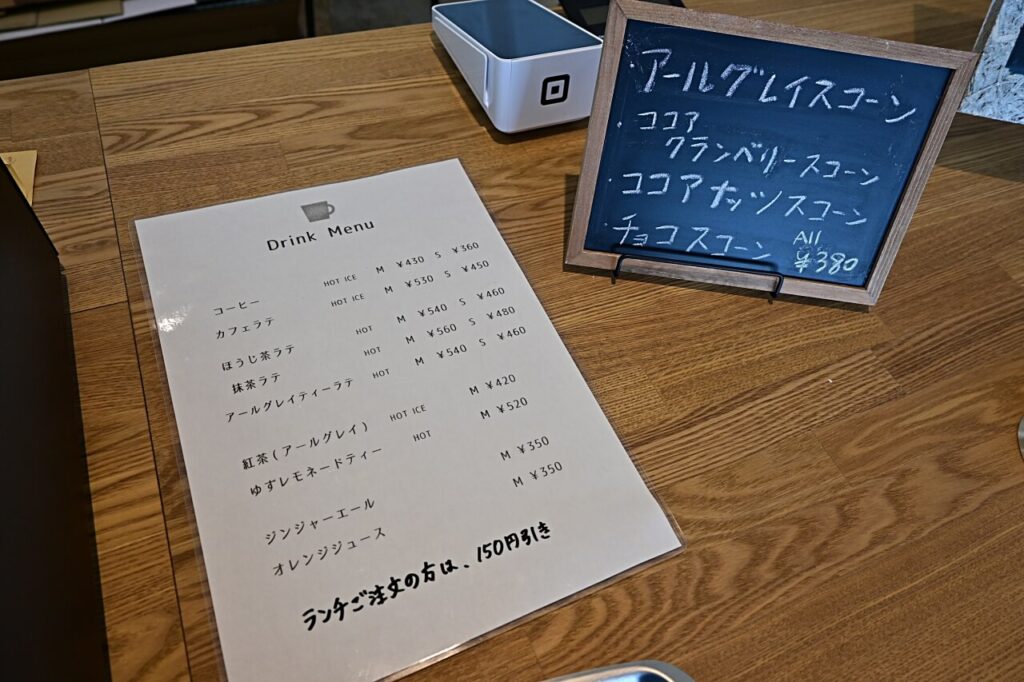 Drink Menu
コーヒー HOT ICE M ¥430 S ¥360
カフェラテ HOT ICE M ¥530 S ¥450
ほうじ茶ラテ HOT M ¥540 S ¥460
抹茶ラテ HOT M ¥560 S ¥480
アールグレイティーラテ HOT M ¥540 S ¥460
紅茶(アールグレイ) HOT ICE M ¥420
ゆずレモネードティー HOT M ¥520
ジンジャーエール M ¥350
オレンジジュース M ¥350
ランチご注文の方は、150円引き
アールグレイスコーン
・ココア
クランベリースコーン
・ココアナッツスコーン
・チョコスコーン All
¥380